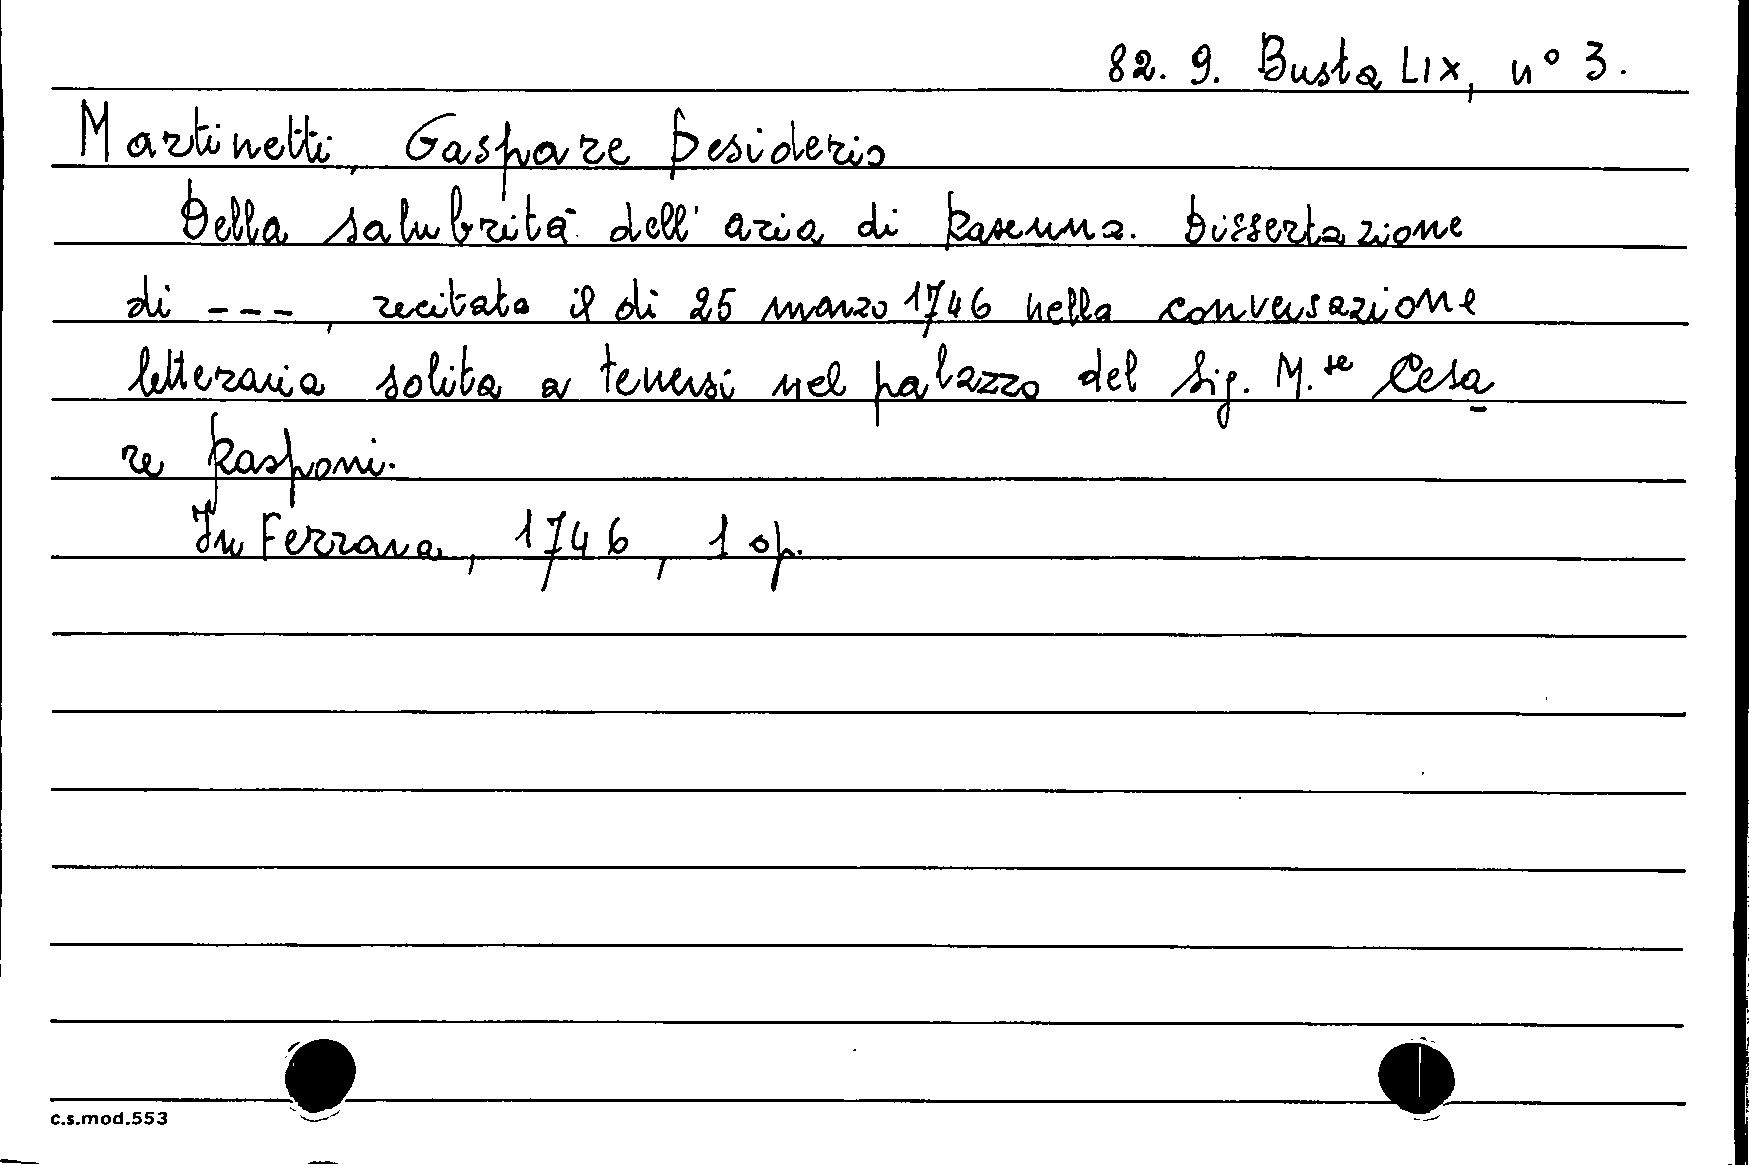 82. 9. Busta LIX, n° 3.
Martinetti, Gaspare Desiderio
Della salubrità dell'aria di Ravenna. Dissertazione
di ---, recitata il di 25 marzo 1746 nella conversazione
letteraria solita a tenersi nel palazzo del Sig. M.se Cesa
re Rasponi.
In Ferrara, 1746, 1 op.
c.s.mod.553